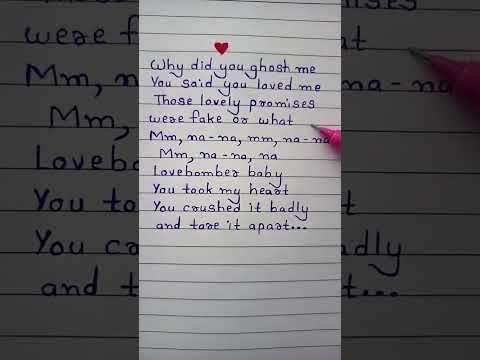 Why did you ghost me
You said you loved me
Those lovely promises
were fake or what
Mm, na-na, mm, na-na
Mm, na-na, na
Lovebomber baby
You took my heart
You crushed it badly
and tore it apart...